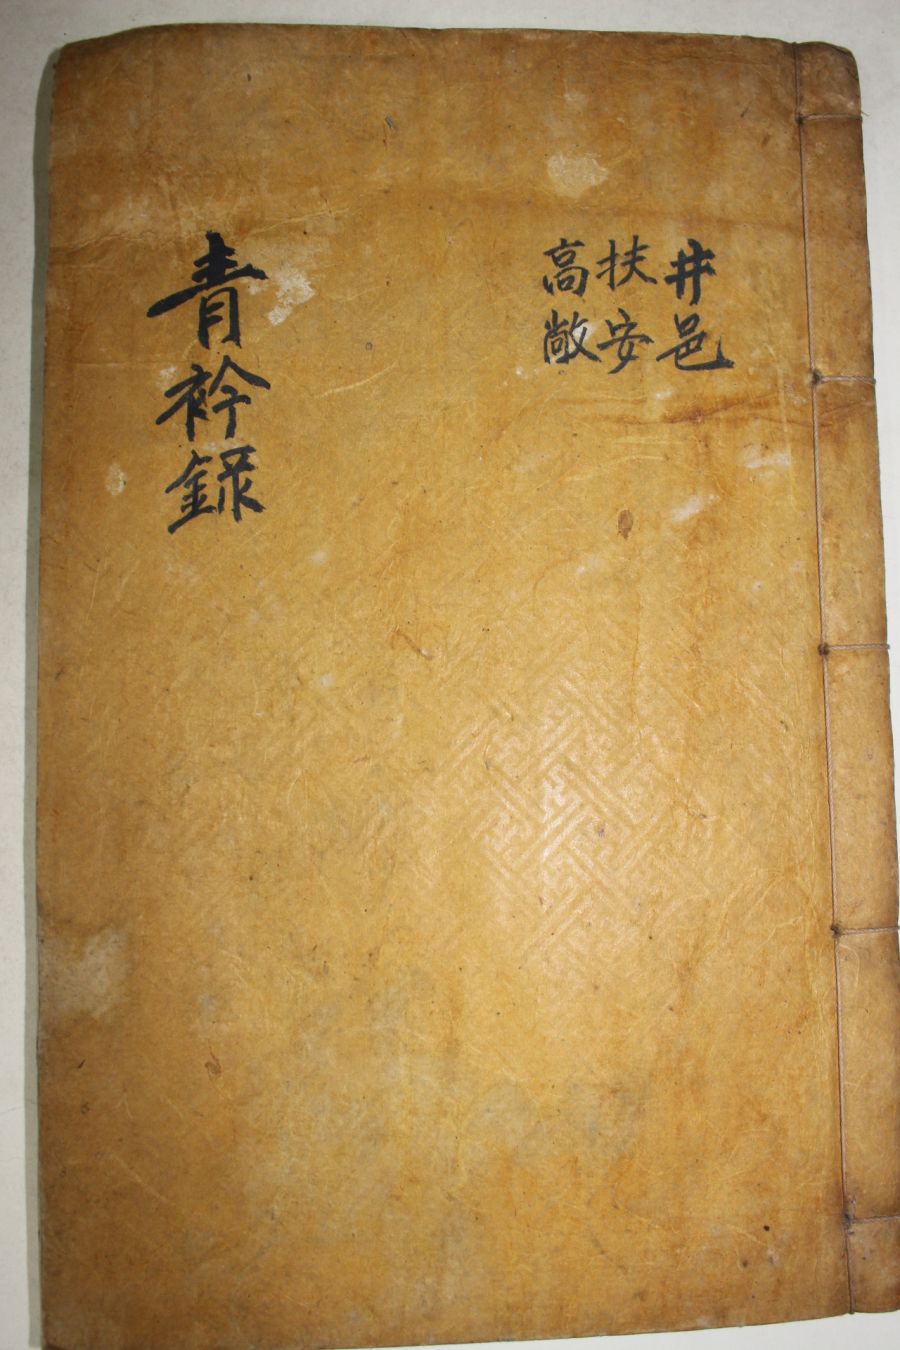 井邑
扶安
高敞
青衿録